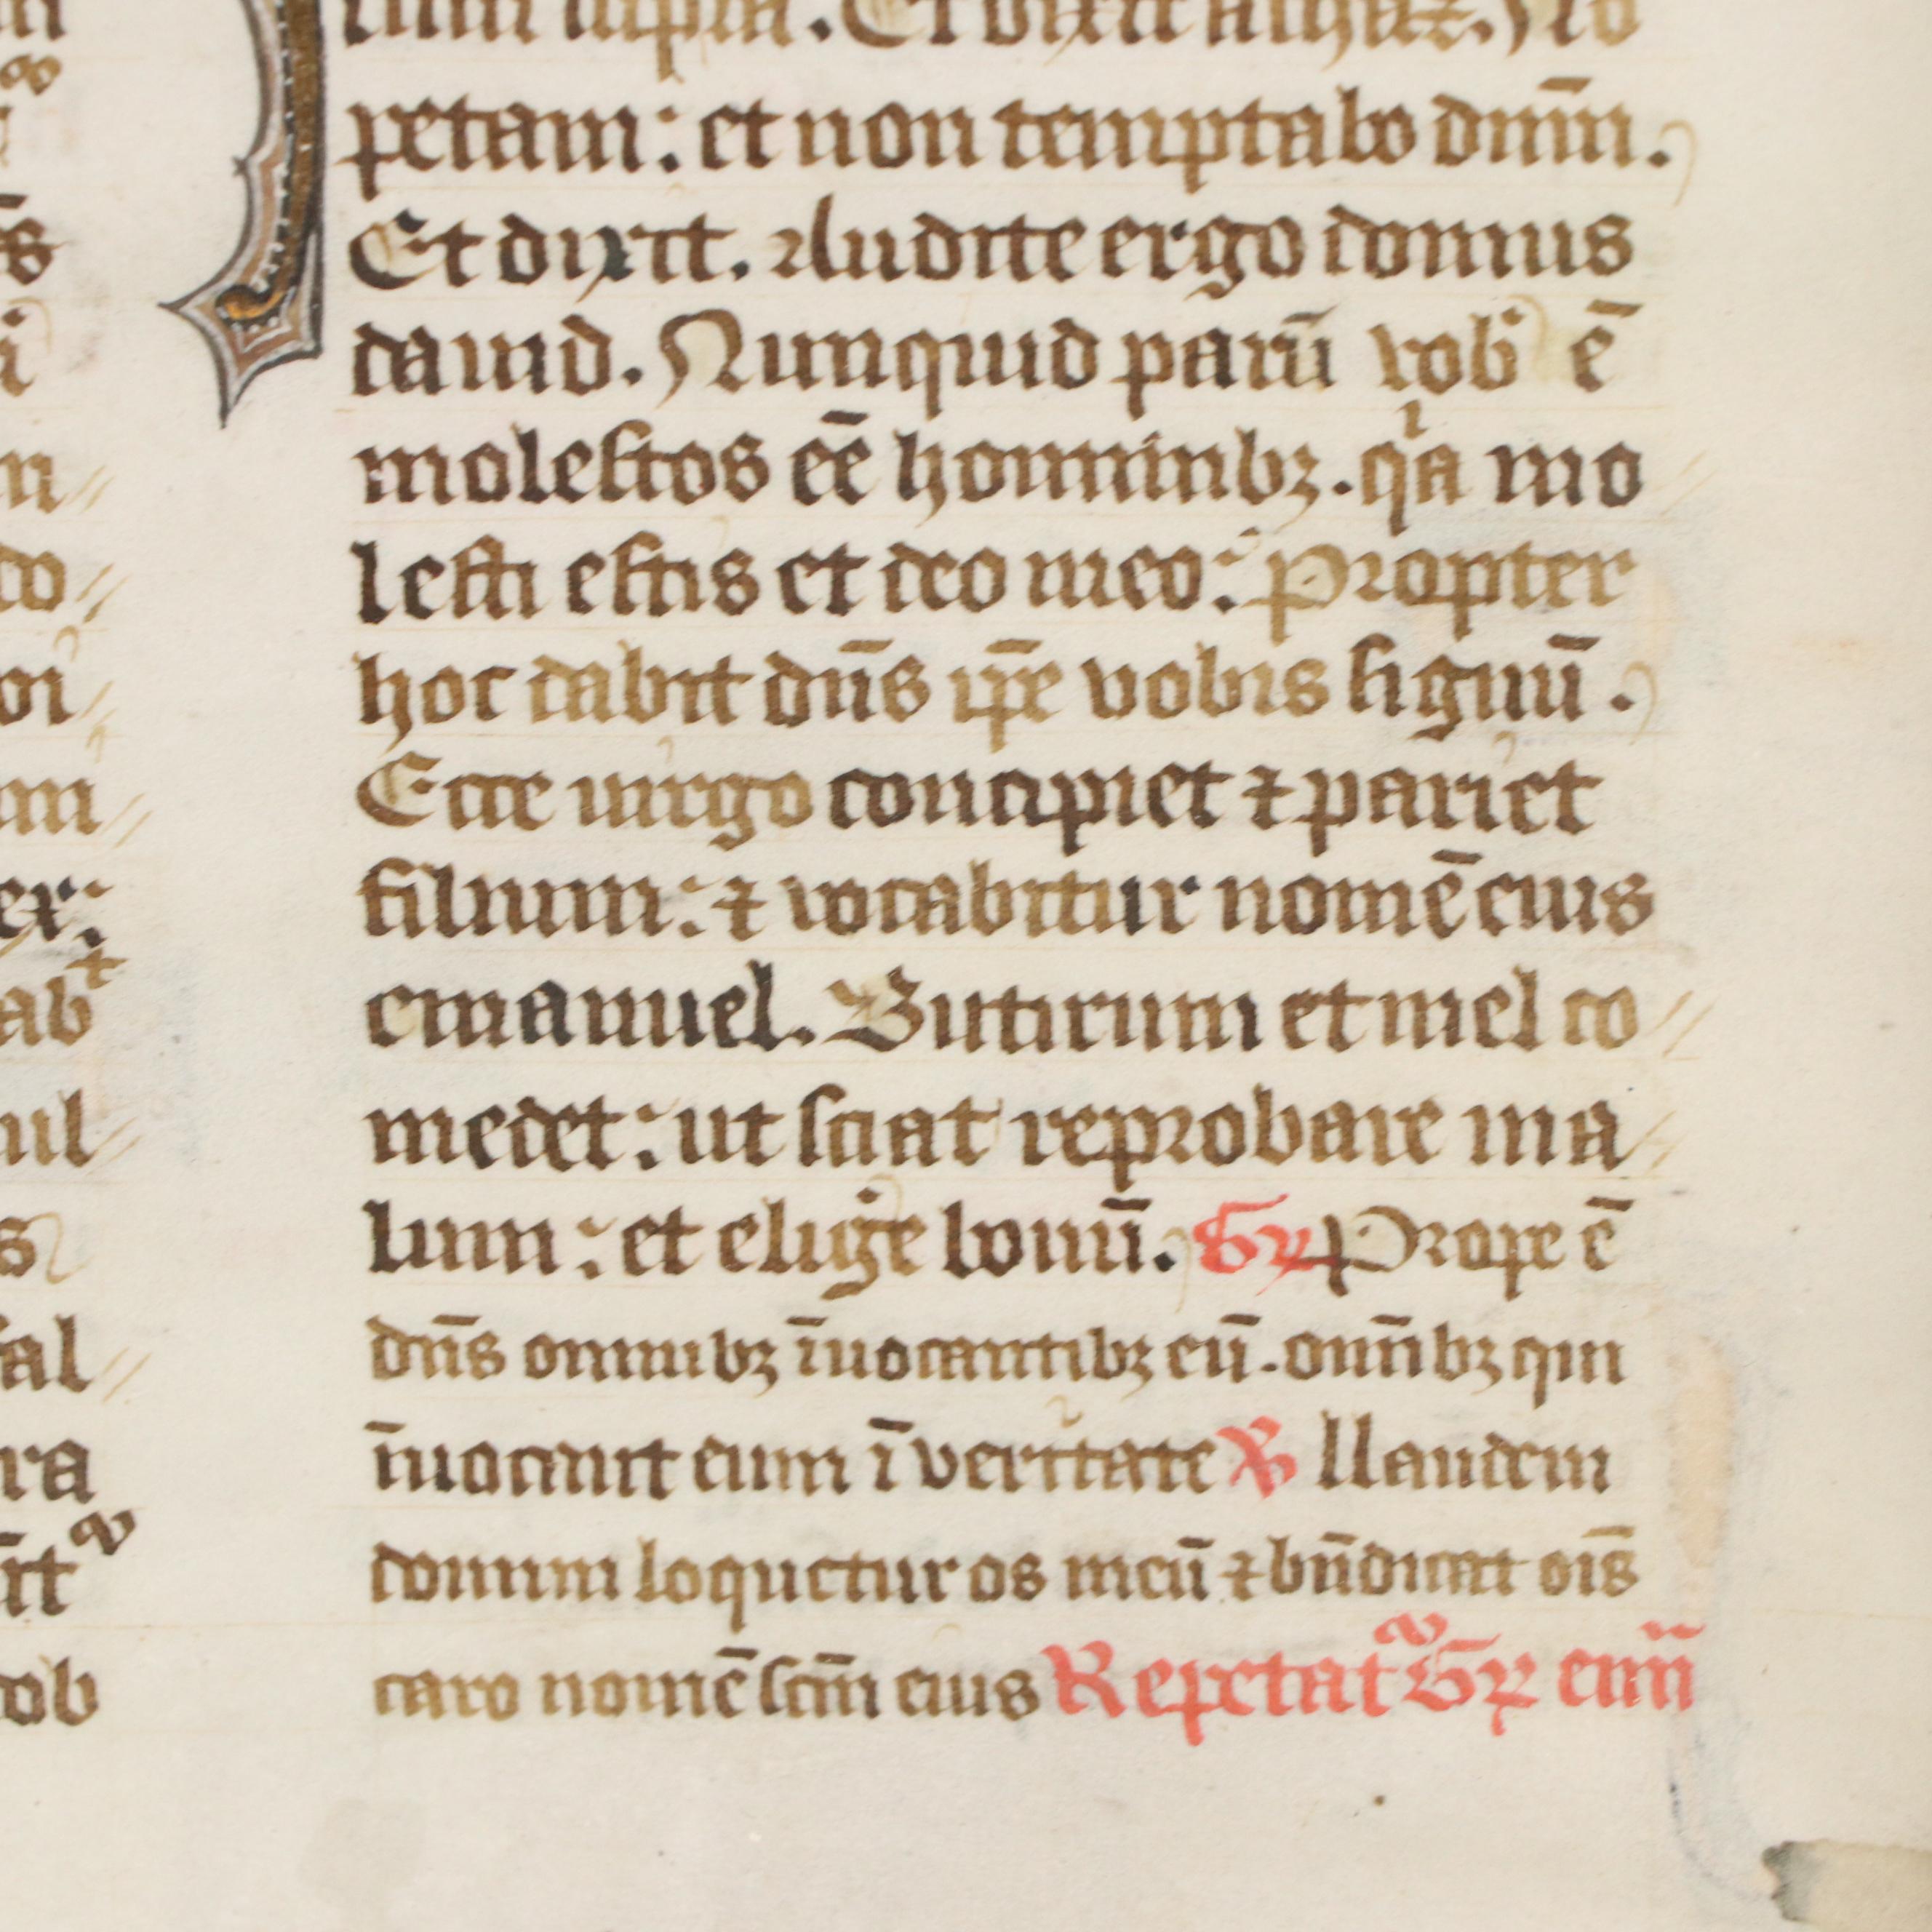 petam: et non temptabo dnm̄.
Et dixit. Audite ergo domus
dauid. Nunquid parū vob' ē
molestos eē hominibꝫ. qͥa mo
lesti estis et deo meo: Propter
hoc dabit dn̄s ip̄e vobis signū.
Ecce uirgo concipiet ⁊ pariet
filium: ⁊ vocabitur nomē eius
emanuel. Butirum et mel co//
medet: ut sciat reprobare ma//
lum: et elig'e bonū. Gr̄ Prope ē
dn̄s omnibꝫ īuocantibꝫ eū. omn̄ibꝫ qui
īuocant eum ī veritate ℟ llaudem
domini loquetur os meū ⁊ bn̄dicat oīs
caro nomē scm̄ eius Repetat᷑ Gr̄